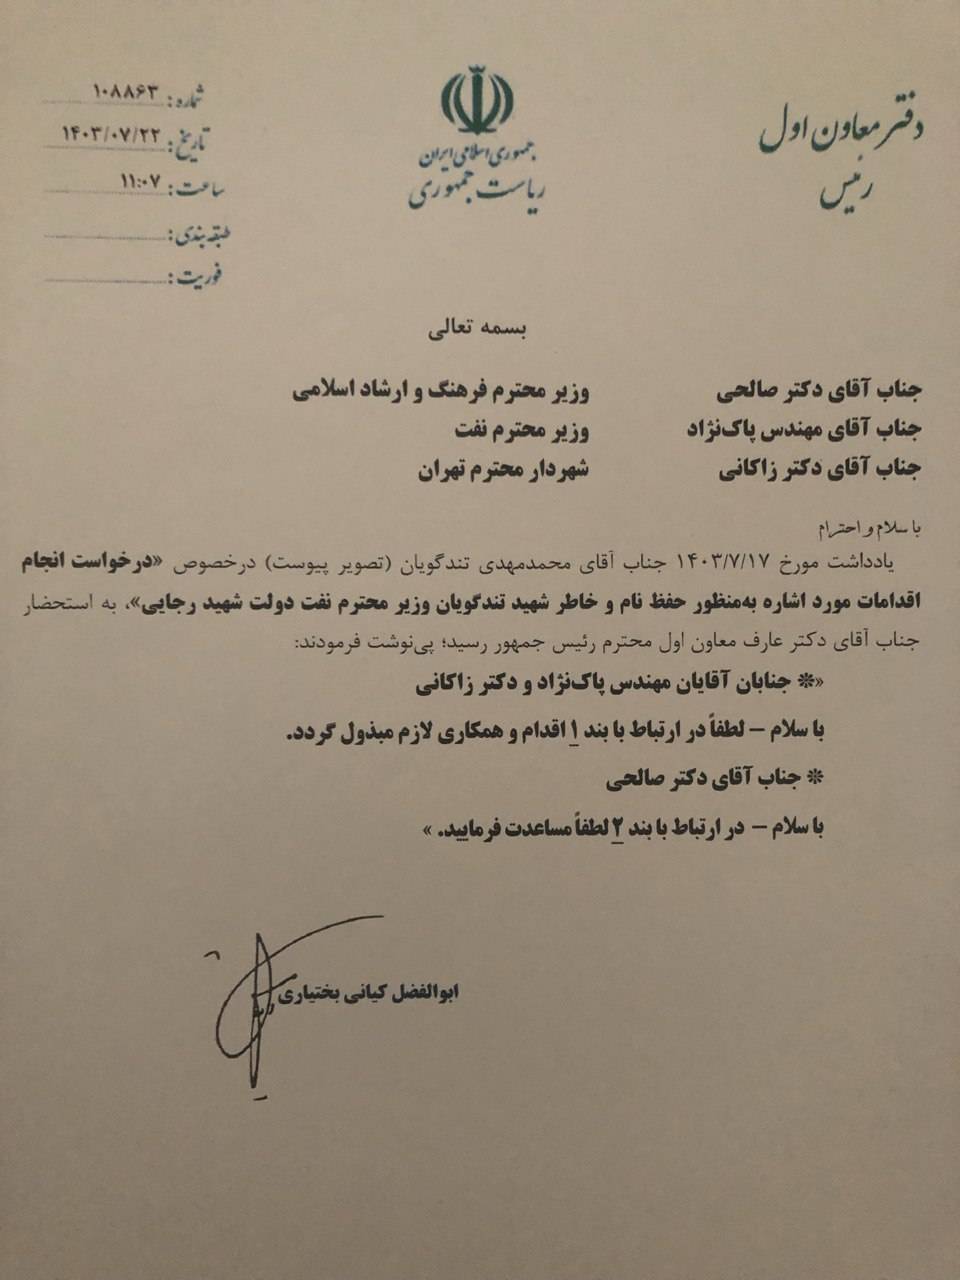 دفتر معاون اول
رئیس
جمهوری اسلامی ایران
ریاست جمهوری
شماره: ۱۰۸۸۶۳
تاریخ: ۱۴۰۳/۰۷/۲۲
ساعت: ۱۱:۰۷
طبقه‌بندی:
فوریت:
بسمه تعالی
جناب آقای دکتر صالحی وزیر محترم فرهنگ و ارشاد اسلامی
جناب آقای مهندس پاک‌نژاد وزیر محترم نفت
جناب آقای دکتر زاکانی شهردار محترم تهران
با سلام و احترام
یادداشت مورخ ۱۴۰۳/۷/۱۷ جناب آقای محمدمهدی تندگویان (تصویر پیوست) درخصوص «درخواست انجام
اقدامات مورد اشاره به‌منظور حفظ نام و خاطر شهید تندگویان وزیر محترم نفت دولت شهید رجایی»، به استحضار
جناب آقای دکتر عارف معاون اول محترم رئیس جمهور رسید؛ پی‌نوشت فرمودند:
«❊ جنابان آقایان مهندس پاک‌نژاد و دکتر زاکانی
با سلام – لطفاً در ارتباط با بند ۱ اقدام و همکاری لازم مبذول گردد.
❊ جناب آقای دکتر صالحی
با سلام – در ارتباط با بند ۲ لطفاً مساعدت فرمایید. »
ابوالفضل کیانی بختیاری